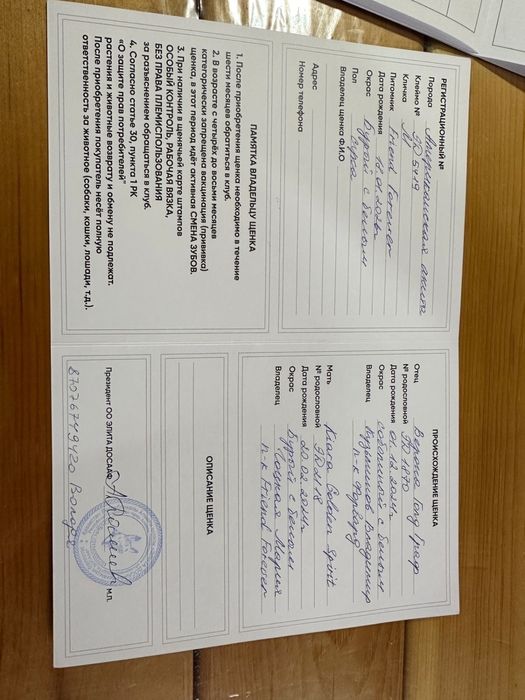 РЕГИСТРАЦИОННЫЙ №
Порода Американская акита
Клеймо № ЭД 5419
Кличка
Питомник Friend Forever
Дата рождения
Окрас Бурый с белым
Пол сука
Владелец щенка Ф.И.О
Адрес
Номер телефона
ПАМЯТКА ВЛАДЕЛЬЦУ ЩЕНКА
1. После приобретения щенка необходимо в течение
шести месяцев обратиться в клуб.
2. В возрасте с четырёх до восьми месяцев
категорически запрещена вакцинация (прививка)
щенка, в этот период идёт активная СМЕНА ЗУБОВ.
3. При наличии в щенячьей карте штампов
ОСОБЫЙ КОНТРОЛЬ, РАБОЧАЯ ВЯЗКА,
БЕЗ ПРАВА ПЛЕМИСПОЛЬЗОВАНИЯ
за разъяснением обращаться в клуб.
4. Согласно статье 30, пункта 1 РК
«О защите прав потребителей"
растения и животные возврату и обмену не подлежат.
После приобретения покупатель несёт полную
ответственность за животное (собаки, кошки, лошади, т.д.).
ПРОИСХОЖДЕНИЕ ЩЕНКА
Отец
№ родословной
Дата рождения 01.12.2021г
Окрас соболиный с белым
Владелец Владимир
п-к Форвард
Мать Kiara Golden Spirit
№ родословной
Дата рождения 20.02.2021г
Окрас Бурый с белым
Владелец Мария
п-к Friend Forever
ОПИСАНИЕ ЩЕНКА
Президент ОО ЭЛИТА ДОСААФ
М.П.
87076749420